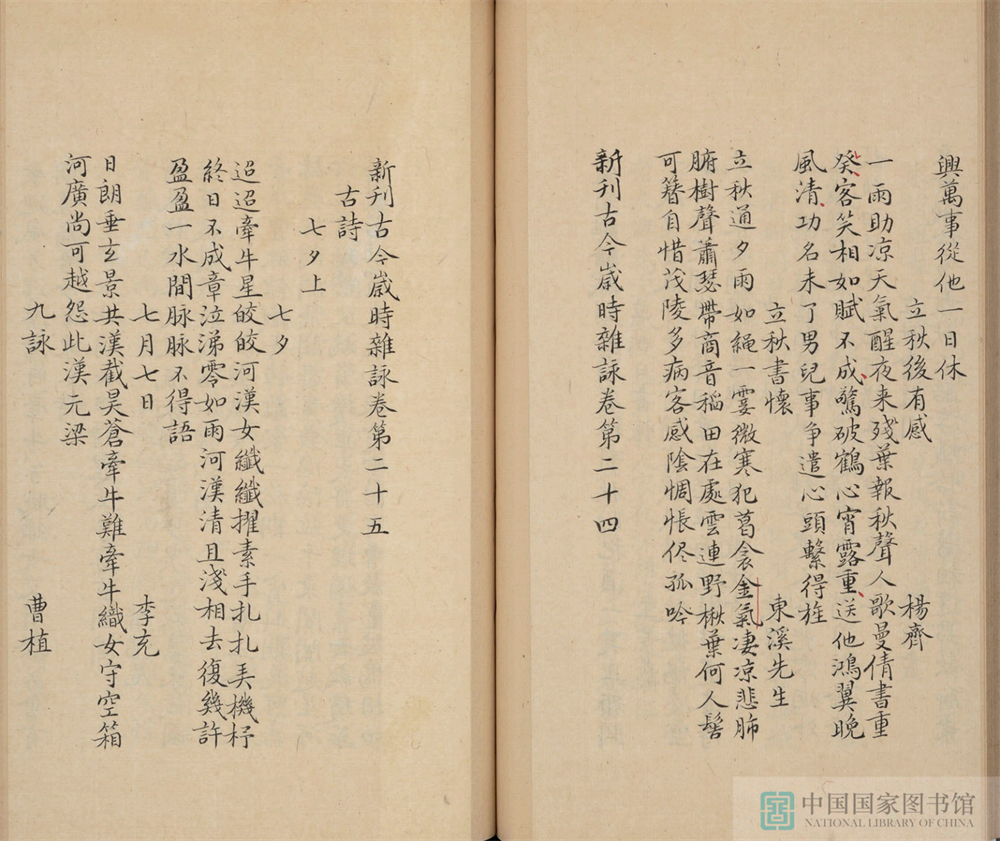 興萬事從他一日休
立秋後有感 楊齊
一雨助凉天氣醒夜来殘葉報秋聲人歌曼倩書重
癸客笑相如賦不成驚破鶴心宵露重送他鴻翼晚
風清功名未了男兒事争遣心頭繫得旌
立秋書懷 東溪先生
立秋通夕雨如繩一霎微寒犯葛衾金氣凄凉悲肺
腑樹聲蕭瑟帶商音稲田在處雲連野楸葉何人髻
可簪自惜茂陵多病客感陰惆悵侭孤吟
新刊古今嵗時雜詠卷第二十四
新刊古今嵗時雜詠卷第二十五
古詩
七夕上
七夕
迢迢牽牛星皎皎河漢女纖纖擢素手扎扎弄機杼
終日不成章泣涕零如雨河漢清且淺相去復幾許
盈盈一水間脉脉不得語
七月七日 李充
日朗垂玄景共漢截昊蒼牽牛難牽牛織女守空箱
河廣尚可越怨此漢元梁
九詠 曹植
中国国家图书馆
NATIONAL LIBRARY OF CHINA